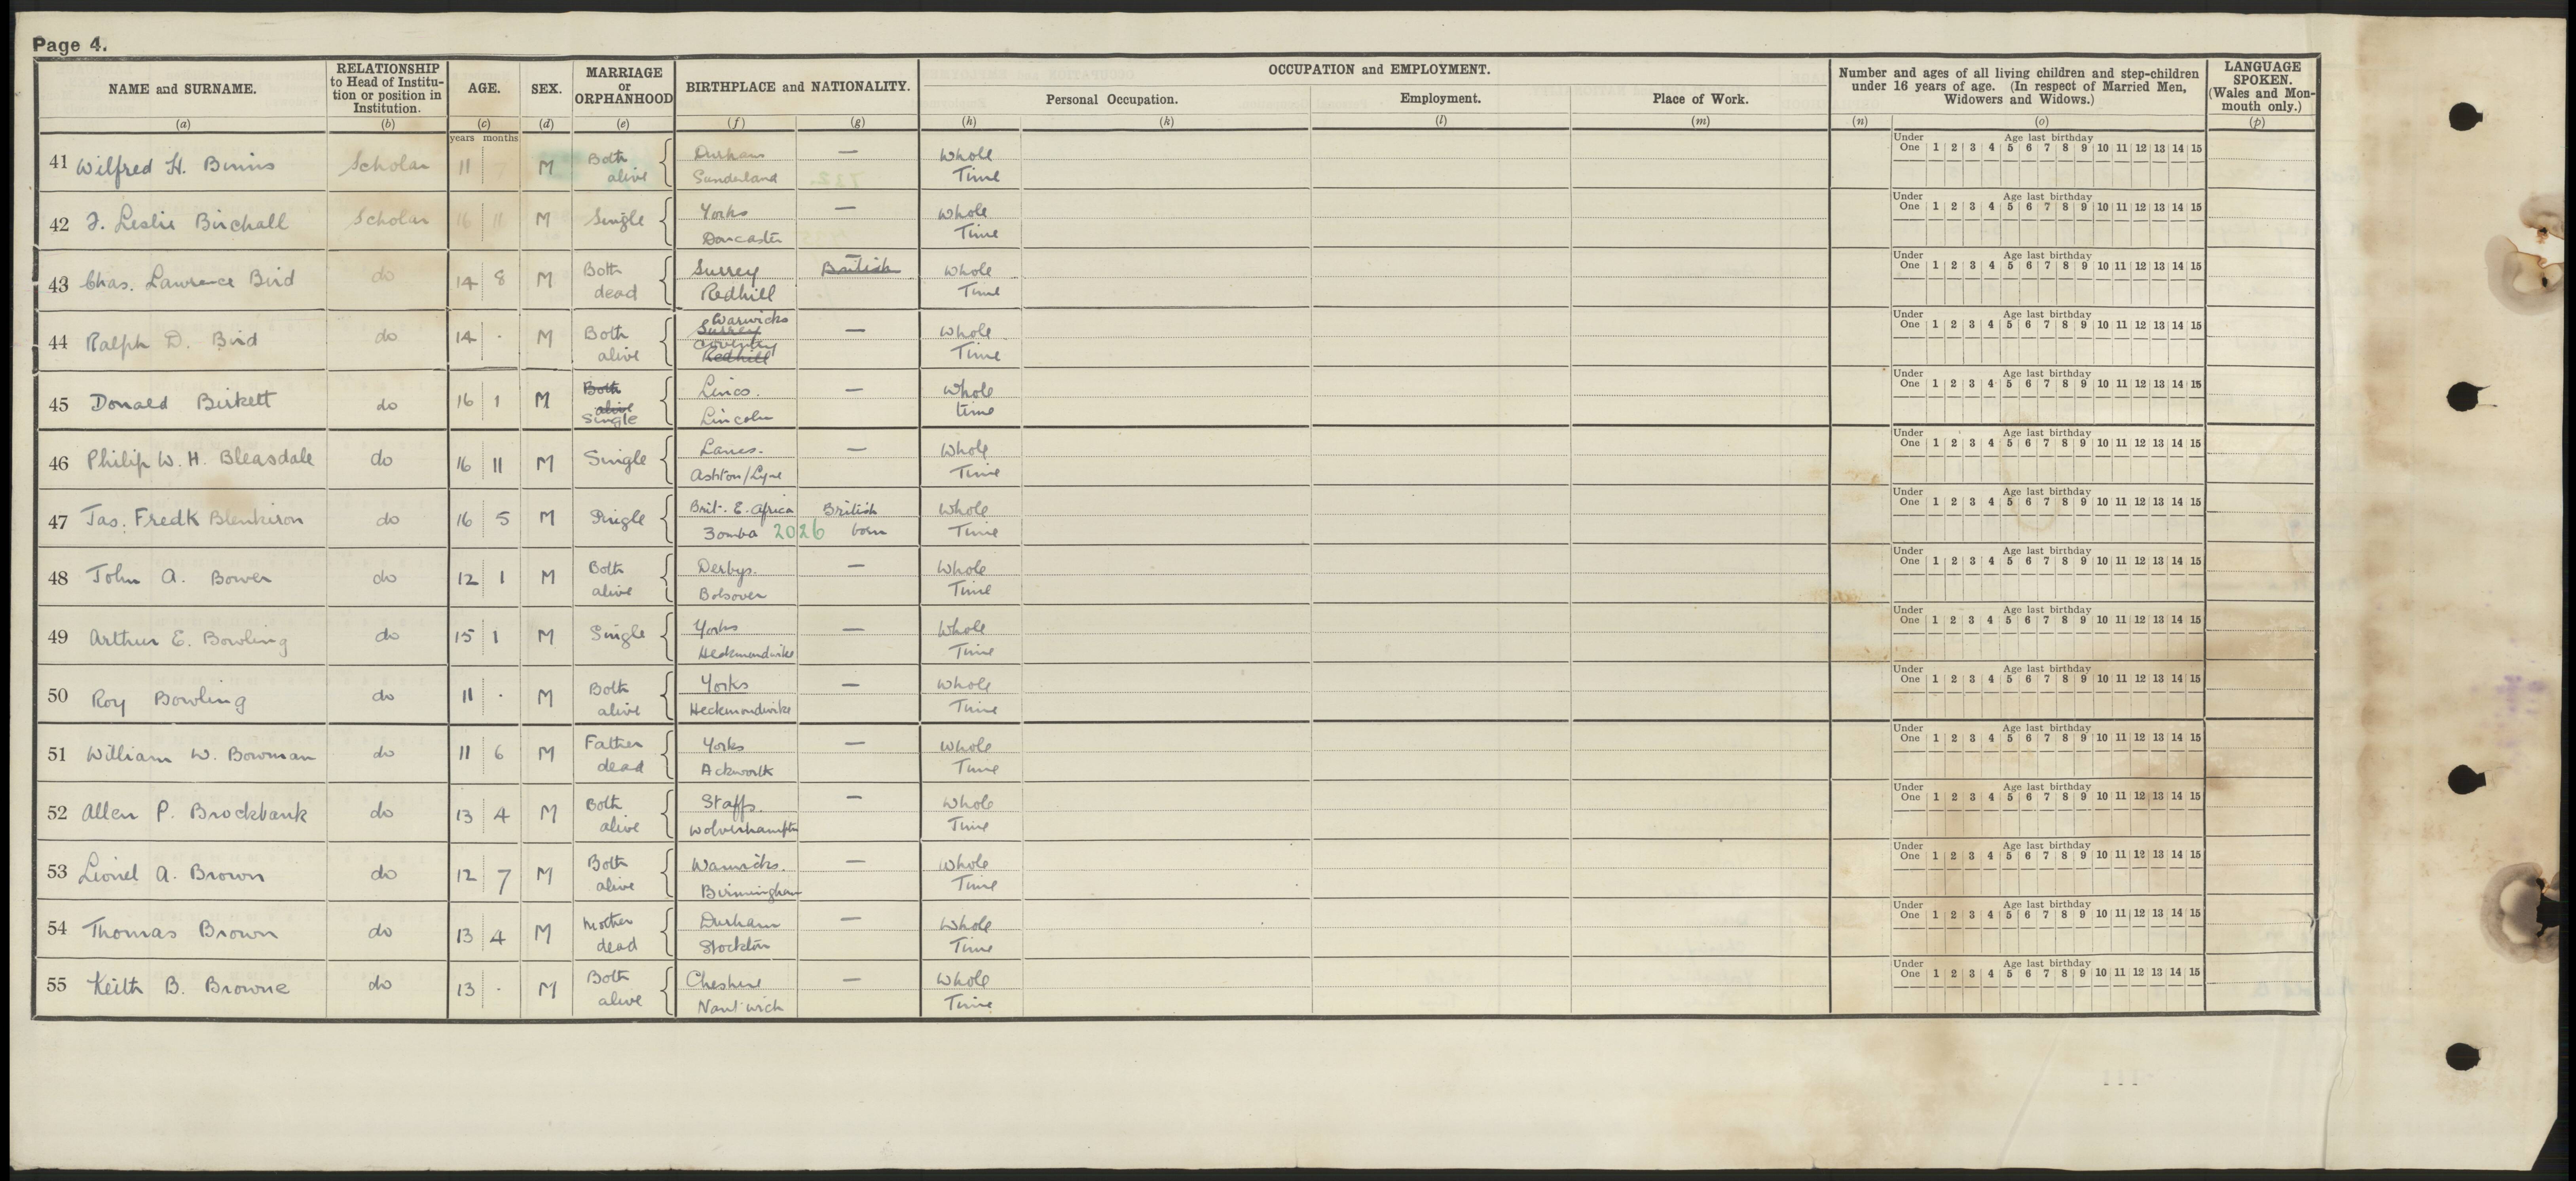 Page 4.
NAME and SURNAME. RELATIONSHIP to Head of Institu- tion or position in Institution. AGE. SEX. MARRIAGE or ORPHANHOOD BIRTHPLACE and NATIONALITY. OCCUPATION and EMPLOYMENT. Personal Occupation. Employment. Place of Work. Number and ages of all living children and step-children under 16 years of age. (In respect of Married Men, Widowers and Widows.) LANGUAGE SPOKEN. (Wales and Mon- mouth only.)
(a) (b) (c) (d) (e) (f) (g) (h) (k) (l) (m) (n) (o) (p)
years months
41 Wilfred H. Binns Scholar 11 7 M Both alive Durham Sunderland — Whole Time
Under One Age last birthday 1 2 3 4 5 6 7 8 9 10 11 12 13 14 15
42 J. Leslie Birchall Scholar 16 11 M Single Yorks Doncaster — Whole Time
Under One Age last birthday 1 2 3 4 5 6 7 8 9 10 11 12 13 14 15
43 Chas. Lawrence Bird do 14 8 M Both dead Surrey Redhill British Whole Time
Under One Age last birthday 1 2 3 4 5 6 7 8 9 10 11 12 13 14 15
44 Ralph D. Bird do 14 · M Both alive Warwicks Surrey Coventry Redhill — Whole Time
Under One Age last birthday 1 2 3 4 5 6 7 8 9 10 11 12 13 14 15
45 Donald Birkett do 16 1 M Both alive Single Lincs. Lincoln — Whole time
Under One Age last birthday 1 2 3 4 5 6 7 8 9 10 11 12 13 14 15
46 Philip W. H. Bleasdale do 16 11 M Single Lancs. Ashton/Lyne — Whole Time
Under One Age last birthday 1 2 3 4 5 6 7 8 9 10 11 12 13 14 15
47 Jas. Fredk Blenkiron do 16 5 M Single Brit. E. Africa Zomba 2026 British born Whole Time
Under One Age last birthday 1 2 3 4 5 6 7 8 9 10 11 12 13 14 15
48 John A. Bower do 12 1 M Both alive Derbys. Bolsover — Whole Time
Under One Age last birthday 1 2 3 4 5 6 7 8 9 10 11 12 13 14 15
49 Arthur E. Bowling do 15 1 M Single Yorks Heckmondwike — Whole Time
Under One Age last birthday 1 2 3 4 5 6 7 8 9 10 11 12 13 14 15
50 Roy Bowling do 11 · M Both alive Yorks Heckmondwike — Whole Time
Under One Age last birthday 1 2 3 4 5 6 7 8 9 10 11 12 13 14 15
51 William W. Bowman do 11 6 M Father dead Yorks Ackworth — Whole Time
Under One Age last birthday 1 2 3 4 5 6 7 8 9 10 11 12 13 14 15
52 Allen P. Brockbank do 13 4 M Both alive Staffs. Wolverhampton — Whole Time
Under One Age last birthday 1 2 3 4 5 6 7 8 9 10 11 12 13 14 15
53 Lionel A. Brown do 12 7 M Both alive Warwicks. Birmingham — Whole Time
Under One Age last birthday 1 2 3 4 5 6 7 8 9 10 11 12 13 14 15
54 Thomas Brown do 13 4 M Mother dead Durham Stockton — Whole Time
Under One Age last birthday 1 2 3 4 5 6 7 8 9 10 11 12 13 14 15
55 Keith B. Browne do 13 · M Both alive Cheshire Nantwich — Whole Time
Under One Age last birthday 1 2 3 4 5 6 7 8 9 10 11 12 13 14 15